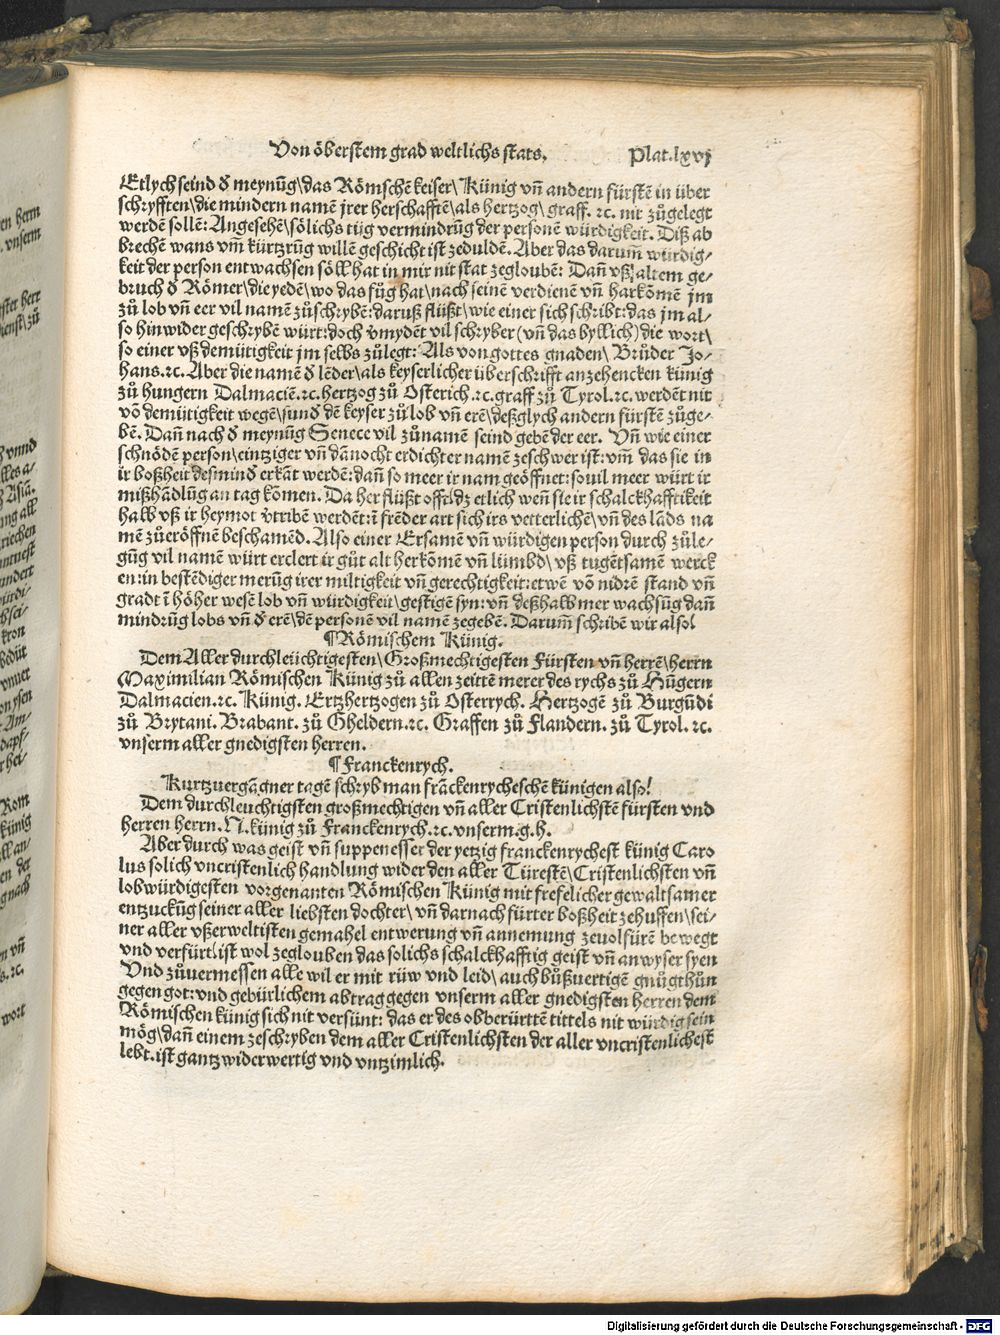 Von öberstem grad weltlichs stats.
Plat.lxvj
Etlych seind d̄ meynūg\das Römschē keiser\Künig vn̄ andern fürstē in über
schryfften\die mindern namē jrer herschafftē\als hertzog\graff. ⁊c. nit zůgelegt
werdē sollē: Angesehē\sölichs tüg vermindrūg der personē würdigkeit. Diß ab
brechē wans vm̄ kürtzrūg willē geschicht ist zeduldē. Aber das darum̄ würdig⸗
keit der person entwachsen söll hat in mir nit stat zegloubē: Dan̄ vß altem ge⸗
bruch d̄ Römer\die yedē\wo das füg hat\nach seinē verdienē vn̄ harkōmē jm
zů lob vn̄ eer vil namē zůschrybē: daruß flüßt\wie einer sich schribt: das jm al⸗
so hinwider geschrybē würt: doch v̄mydēt vil schryber (vn̄ das byllich) die wort\
so einer vß demütigkeit jm selbs zůlegt: Als von gottes gnaden\ Brůder Jo⸗
hans.⁊c. Aber die namē d̄ lēder\als keyserlicher überschrifft anzehencken künig
zů hungern Dalmaciē.⁊c. hertzog zů Osterich.⁊c. graff zů Tyrol.⁊c. werdēt nit
vō demütigkeit wegē\sund̄ dē keyser zů lob vn̄ erē\deßglych andern fürstē zůge⸗
bē. Dan̄ nach d̄ meynūg Senece vil zůnamē seind gebē der eer. Vn̄ wie einer
schnödē person\eintziger vn̄ dānocht erdichter namē ze schwer ist: vm̄ das sie in
ir boßheit des mind̄ erkāt werdē: dan̄ so meer ir nam geöffnet: souil meer würt ir
mißhādlūg an tag kōmen. Da her flüßt offt\dz etlich wen̄ sie ir schalckhafftikeit
halb vß ir heymot v̄tribē werdēt: ī frēder art sich irs vetterlichē\vn̄ des lāds na
mē zůeröffnē beschamēd. Also einer Ersamē vn̄ würdigen person durch zůle⸗
gūg vil namē würt erclert ir gůt alt herkōmē vn̄ lümbd\ vß tugētsamē werck
en: in bestēdiger merūg irer miltigkeit vn̄ gerechtigkeit: etwē vō nidrē stand vn̄
gradt ī höher wesē lob vn̄ würdigkeit\gestigē syn: vn̄ deßhalb mer wachsūg dan̄
mindrūg lobs vn̄ d̄ erē\dē personē vil namē zegebē. Darum̄ schribē wir also\
¶Römischem Künig.
Dem Aller durchleüchtigesten\Großmechtigesten Fürsten vn̄ herrē\herrn
Maximilian Römischen Künig zů allen zeittē merer des rychs zů Hūgern
Dalmacien.⁊c. Künig. Ertzhertzogen zů Osterrych. Hertzogē zů Burgūdi
zů Brytani. Brabant. zů Gheldern.⁊c. Graffen zů Flandern. zů Tyrol. ⁊c.
vnserm aller gnedigsten herren.
¶Franckenrych.
Kurtzuergāgner tagē schryb man frāckenrycheschē künigen also\
Dem durchleuchtigsten großmechtigen vn̄ aller Cristenlichstē fürsten vnd
herren herrn. N. künig zů Franckenrych.⁊c. vnserm.g.h.
Aber durch was geist vn̄ suppenesser der yetzig franckenrychest künig Caro
lus solich vncristenlich handlung wider den aller Türestē\Cristenlichsten vn̄
lobwürdigesten vorgenanten Römischen Künig mit frefelicher gewaltsamer
entzuckūg seiner aller liebsten dochter\ vn̄ darnach fürter boßheit zehuffen\sei⸗
ner aller vßerweltisten gemahel entwerung vn̄ annemung zeuolfürē bewegt
vnd verfürt\ist wol zeglouben das solichs schalckhafftig geist vn̄ anwyser syen
Vnd zůuermessen alle wil er mit rüw vnd leid\ auch bůßuertigē gnůgthůn
gegen got: vnd gebürlichem abtrag gegen vnserm aller gnedigsten herren dem
Römischen künig sich nit versünt: das er des obberürttē tittels nit würdig sein
mög\dan̄ einem zeschryben dem aller Cristenlichsten der aller vncristenlichest
lebt. ist gantz widerwertig vnd vntzimlich.
Digitalisierung gefördert durch die Deutsche Forschungsgemeinschaft - DFG